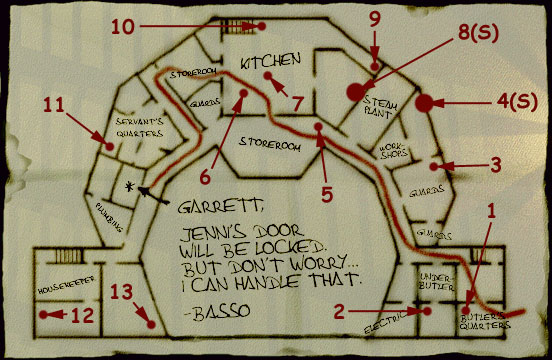 10
9
8(S)
KITCHEN
STOREROOM
7
4(S)
STEAM
PLANT
11
GUARDS
6
SERVANT'S
QUARTERS
STOREROOM
5
WORK-
SHOPS
3
GUARDS
*
PLUMBING
GUARDS
GARRETT,
JENNI'S DOOR
WILL BE LOCKED.
BUT DON'T WORRY...
I CAN HANDLE THAT.
-BASSO
1
HOUSEKEEPER
UNDER-
BUTLER
12
13
2
ELECTRIC
BUTLER'S
QUARTERS